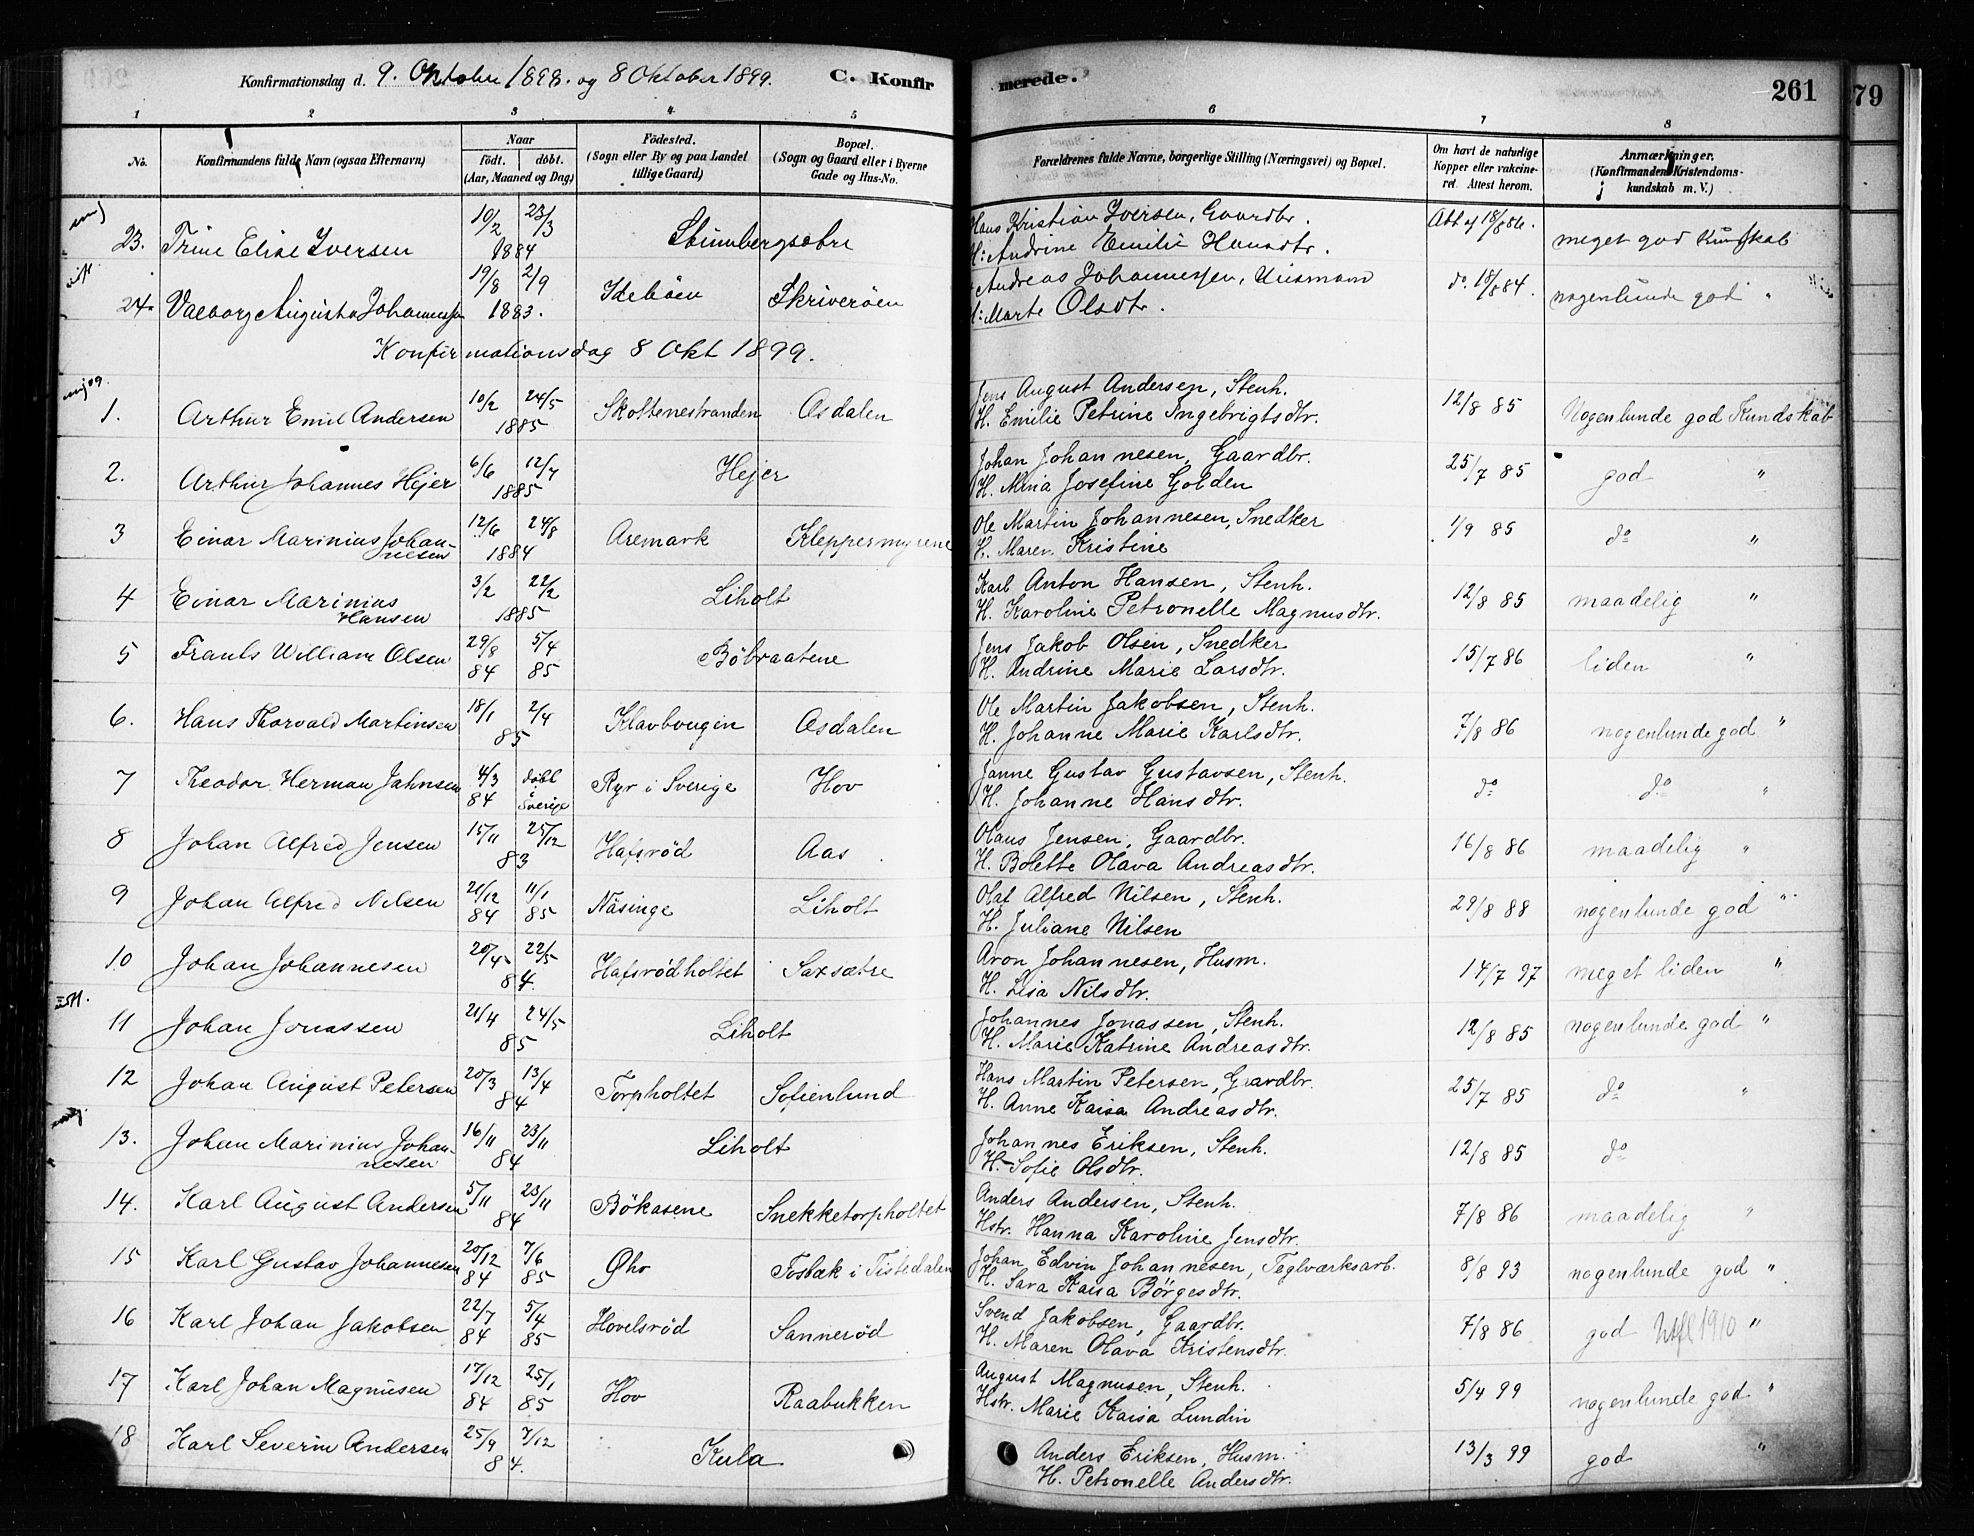 Konfirmationsdag d. 9. Oktobre 1898. og 8 Oktober 1899. C. Konfir merede. 261 79
1 2 3 4 5 6 7 8
No. Konfirmandens fulde Navn (ogsaa Efternavn) Naar født. døbt. (Aar, Maaned og Dag) Fødested. (Sogn eller By og paa Landet tillige Gaard) Bopæl. (Sogn og Gaard eller i Byerne Gade og Hus-No. Forældrenes fulde Navne, borgerlige Stilling (Næringsvei) og Bopæl. Om havt de naturlige Kopper eller vakcineret. Attest herom. Anmærkninger. (Konfirmandens Kristendomskundskab m. V.)
23. Trine Elise Iversen 10/2 23/3 1884 Hans Kristian Iversen, Gaardbr. H: Andrine Emilie Hansdtr. Att af 18/8 86. meget god Kundskab
24. Valborg Augusta Johannessen 19/8 2/9 1883. Idebøen Skriverøen Andreas Johannessen, Husmand H: Marte Olsdtr. do. 18/8 84. nogenlunde god "
Konfirmationsdag 8 Okt 1899.
1. Arthur Emil Andersen 10/2 24/5 1885 Skoltenestranden Asdalen Jens August Andersen, Stenh. H. Emilie Petrine Ingebrigtsdtr. 12/8 85 Nogenlunde god Kundskab
2. Arthur Johannes Hejer 6/6 12/7 1885 Hejer Johan Johannesen, Gaardbr. H. Mina Josefine Golden 25/7 85 god "
3 Einar Marinius Johannesen 12/6 24/8 1884 Aremark Kleppermyrene Ole Martin Johannesen, Snedker H. Maren Kristine 1/9 85 do "
4 Einar Marinius Hansen 3/2 22/2 1885 Liholt Karl Anton Hansen, Stenh. H. Karoline Petronelle Magnusdtr. 12/8 85 maadelig "
5 Frants William Olsen 29/8 84 5/4 85 Böbraatene Jens Jakob Olsen, Snedker H. Andrine Marie Larsdtr. 15/7 86 liden "
6. Hans Thorvald Martinsen 18/1 2/4 85 Klavbougin Asdalen Ole Martin Jakobsen, Stenh. H. Johanne Marie Karlsdtr. 7/8 86 nogenlunde god "
7 Theodor Herman Jahnsen 4/3 84 døbt i Sverige Ryr i Sverige Hov Janne Gustav Gustavsen, Stenh. H. Johanne Hansdtr. do do "
8 Johan Alfred Jensen 15/11 25/12 83 Hafsröd Aas Olaus Jensen, Gaardbr. H. Bolette Olava Andreasdtr. 16/8 86 maadelig "
9 Johan Alfred Nilsen 21/12 84 11/1 85 Näsinge Liholt Olaf Alfred Nilsen, Stenh. H. Juliane Nilsen 29/8 88 nogenlunde god "
10 Johan Johannesen 20/4 22/5 84. Hafsrödholtet Saxsætre Aron Johannesen, Husm. H. Lisa Nilsdtr. 14/7 97 meget liden "
11 Johan Jonassen 21/4 24/5 85 Liholt Johannes Jonassen, Stenh. H. Marie Katrine Andreasdtr. 12/8 85 nogenlunde god "
12 Johan August Petersen 20/3 13/4 84 Torpholtet Sofienlund Hans Martin Petersen, Graardbr. H. Anne Kaisa Andreasdtr. 25/7 85 do "
13. Johan Marinius Johannesen 16/11 23/11 84 Liholt Johannes Eriksen, Stenh. H. Sofie Olsdtr. 12/8 85 do
14. Karl August Andersen 5/11 23/11 84 Bökasene Snekketorpholtet Anders Andersen, Stenh. Hstr. Hanna Karoline Jensdtr. 7/8 86 maadelig "
15 Karl Gustav Johannesen 20/12 84 7/6 85 Øho Fosbæk i Tistedalen Johan Edvin Johannesen, Teglværksarb. H. Sara Kaisa Börgesdtr. 8/8 93 nogenlunde god "
16 Karl Johan Jakobsen 22/7 84 5/4 85 Hovelsröd Sanneröd Svend Jakobsen, Gaardbr. H. Maren Olava Kristensdtr. 7/8 86 god Utfl 1910 "
17 Karl Johan Magnusen 17/12 84 25/1 85 Hov Raabukken August Magnusen, Stenh. Hstr. Marie Kaisa Lundin 5/4 99 nogenlunde god "
18 Karl Severin Andersen 25/9 7/12 84. Kula Anders Eriksen, Husm. H. Petronelle Andersdtr. 13/3 99 god "